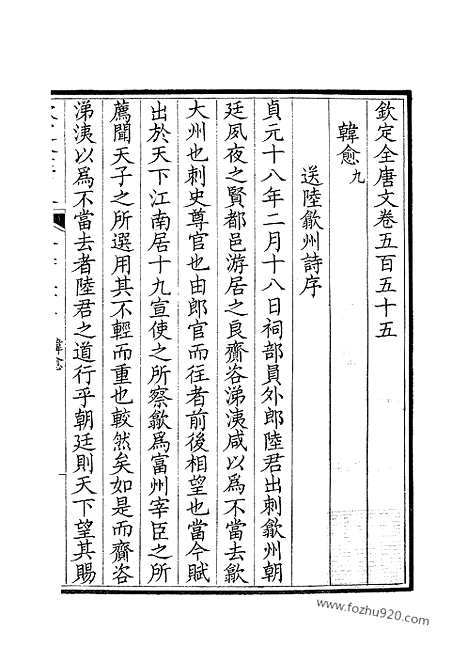 欽定全唐文卷五百五十五
韓愈九
送陸歙州詩序
貞元十八年二月十八日祠部員外郎陸君出刺歙州朝
廷夙夜之賢都邑游居之良齎咨涕洟咸以爲不當去歙
大州也刺史尊官也由郎官而往者前後相望也當今賦
出於天下江南居十九宣使之所察歙爲富州宰臣之所
薦聞天子之所選用其不輕而重也較然矣如是而齎咨
涕洟以爲不當去者陸君之道行乎朝廷則天下望其賜
韓愈
www.fozhu920.com